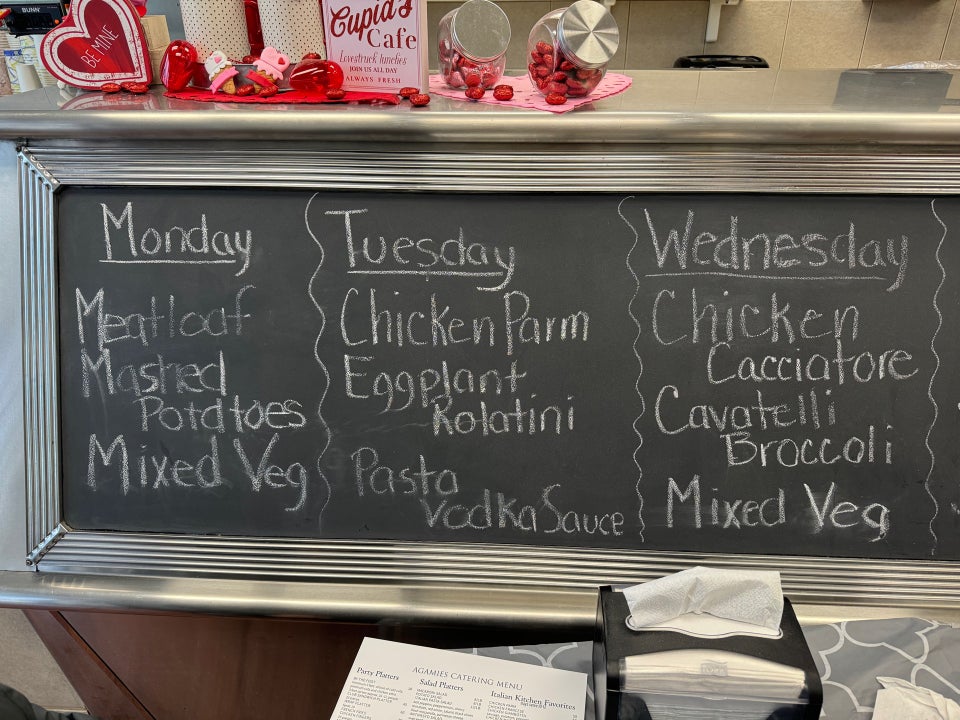 BUNN
BE MINE
Cupid's
Cafe
Lovestruck lunches
JOIN US ALL DAY
ALWAYS FRESH
Monday
Meatloaf
Mashed
Potatoes
Mixed Veg
Tuesday
Chicken Parm
Eggplant
Rolatini
Pasta
Vodka Sauce
Wednesday
Chicken
Cacciatore
Cavatelli
Broccoli
Mixed Veg
AGAMIES CATERING MENU
Party Platters
Salad Platters
Italian Kitchen Favorites